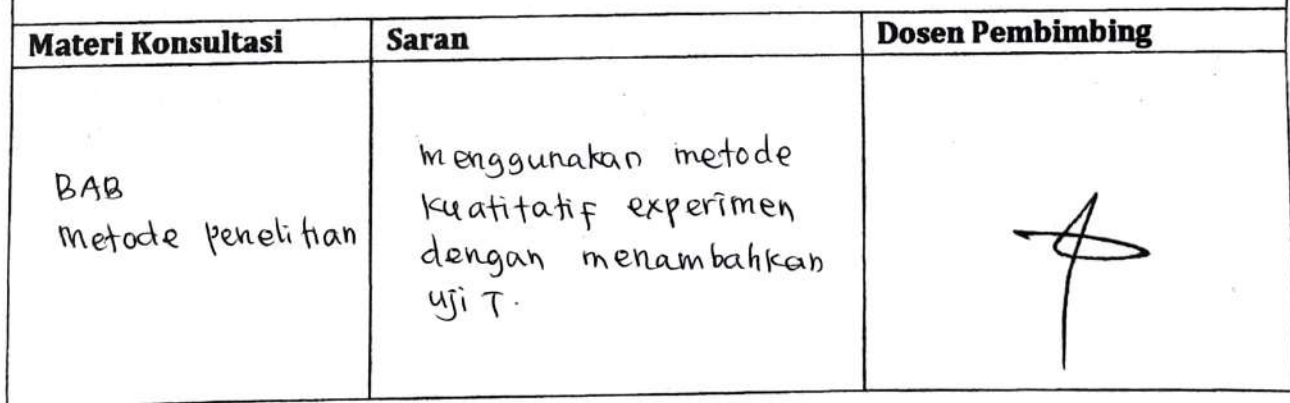 Materi Konsultasi
Saran
Dosen Pembimbing
BAB
Metode penelitian
menggunakan metode
kuatitatif experimen
dengan menambahkan
uji T.